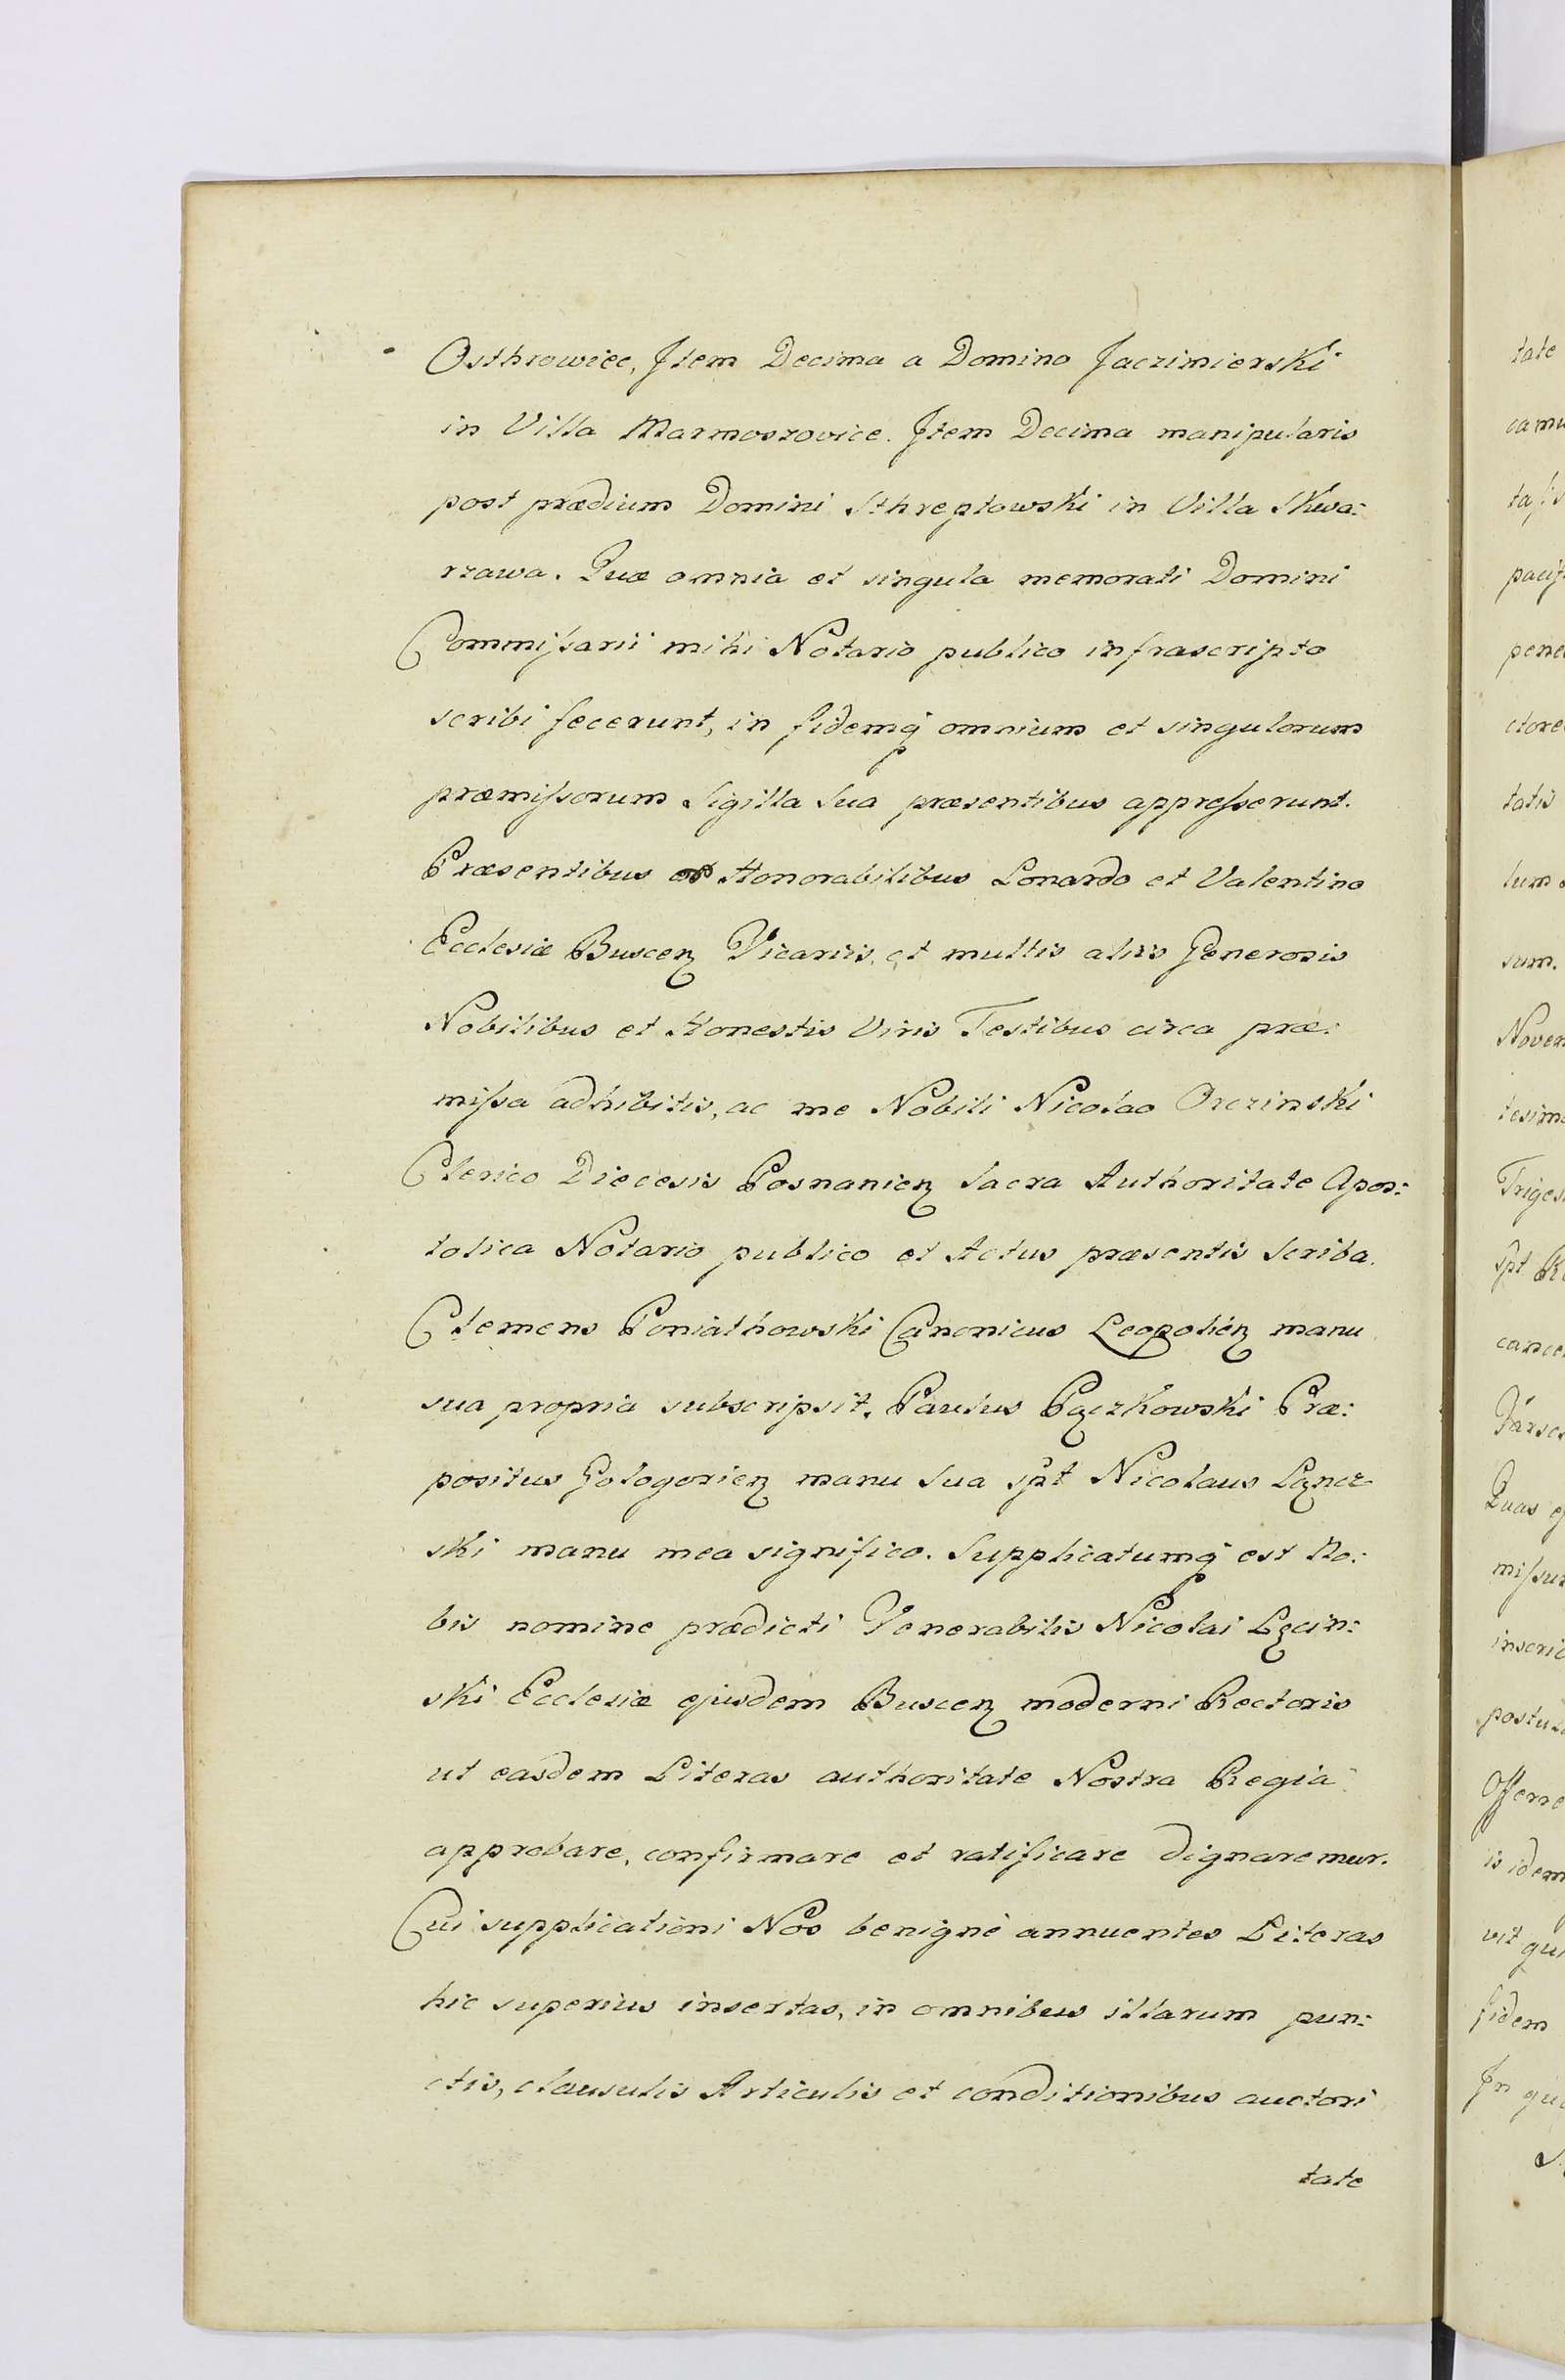 Osthrowiec, Item Decima a Domino Jaczimierski
in Villa Marmoszovice. Item Decima manipularis
post prædium Domini Sthreptowski in Villa Skwa:
rzawa. Quæ omnia et singula memorati Domini
Commissarii mihi Notario publico infrascripto
scribi fecerunt, in fidemq omnium et singulorum
præmissorum Sigilla Sua præsentibus appresserunt.
Præsentibus Honorabilibus Lonardo et Valentino
Ecclesiæ Buscen Vicariis, et multis aliis Generosis
Nobilibus et Honestis Viris Testibus circa præ:
missa adhibitis, ac me Nobili Nicolao Orczinski
Clerico Diecesis Posnanien Sacra Authoritate Apos:
tolica Notario publico et Actus præsentis Scriba.
Clemens Poniathowski Canonicus Leopolien manu
sua propria subscripsit. Paulus Pączkowski Præ:
positus Gologorien manu Sua spt Nicolaus Lącz
ski manu mea significo. Supplicatumq est No:
bis nomine prædicti Venerabilis Nicolai Lęcin:
ski Ecclesiæ ejusdem Buscen moderni Rectoris
ut easdem Literas authoritate Nostra Regia
approbare, confirmare et ratificare dignaremur.
Cui supplicationi Nos benignè annuentes Literas
hic superius insertas, in omnibus illarum pun:
ctis, clausulis Articulis et conditionibus auctori
tate
tate
pacif
tatis
lum
sum.
Trigesi
spt
Quas
fidem